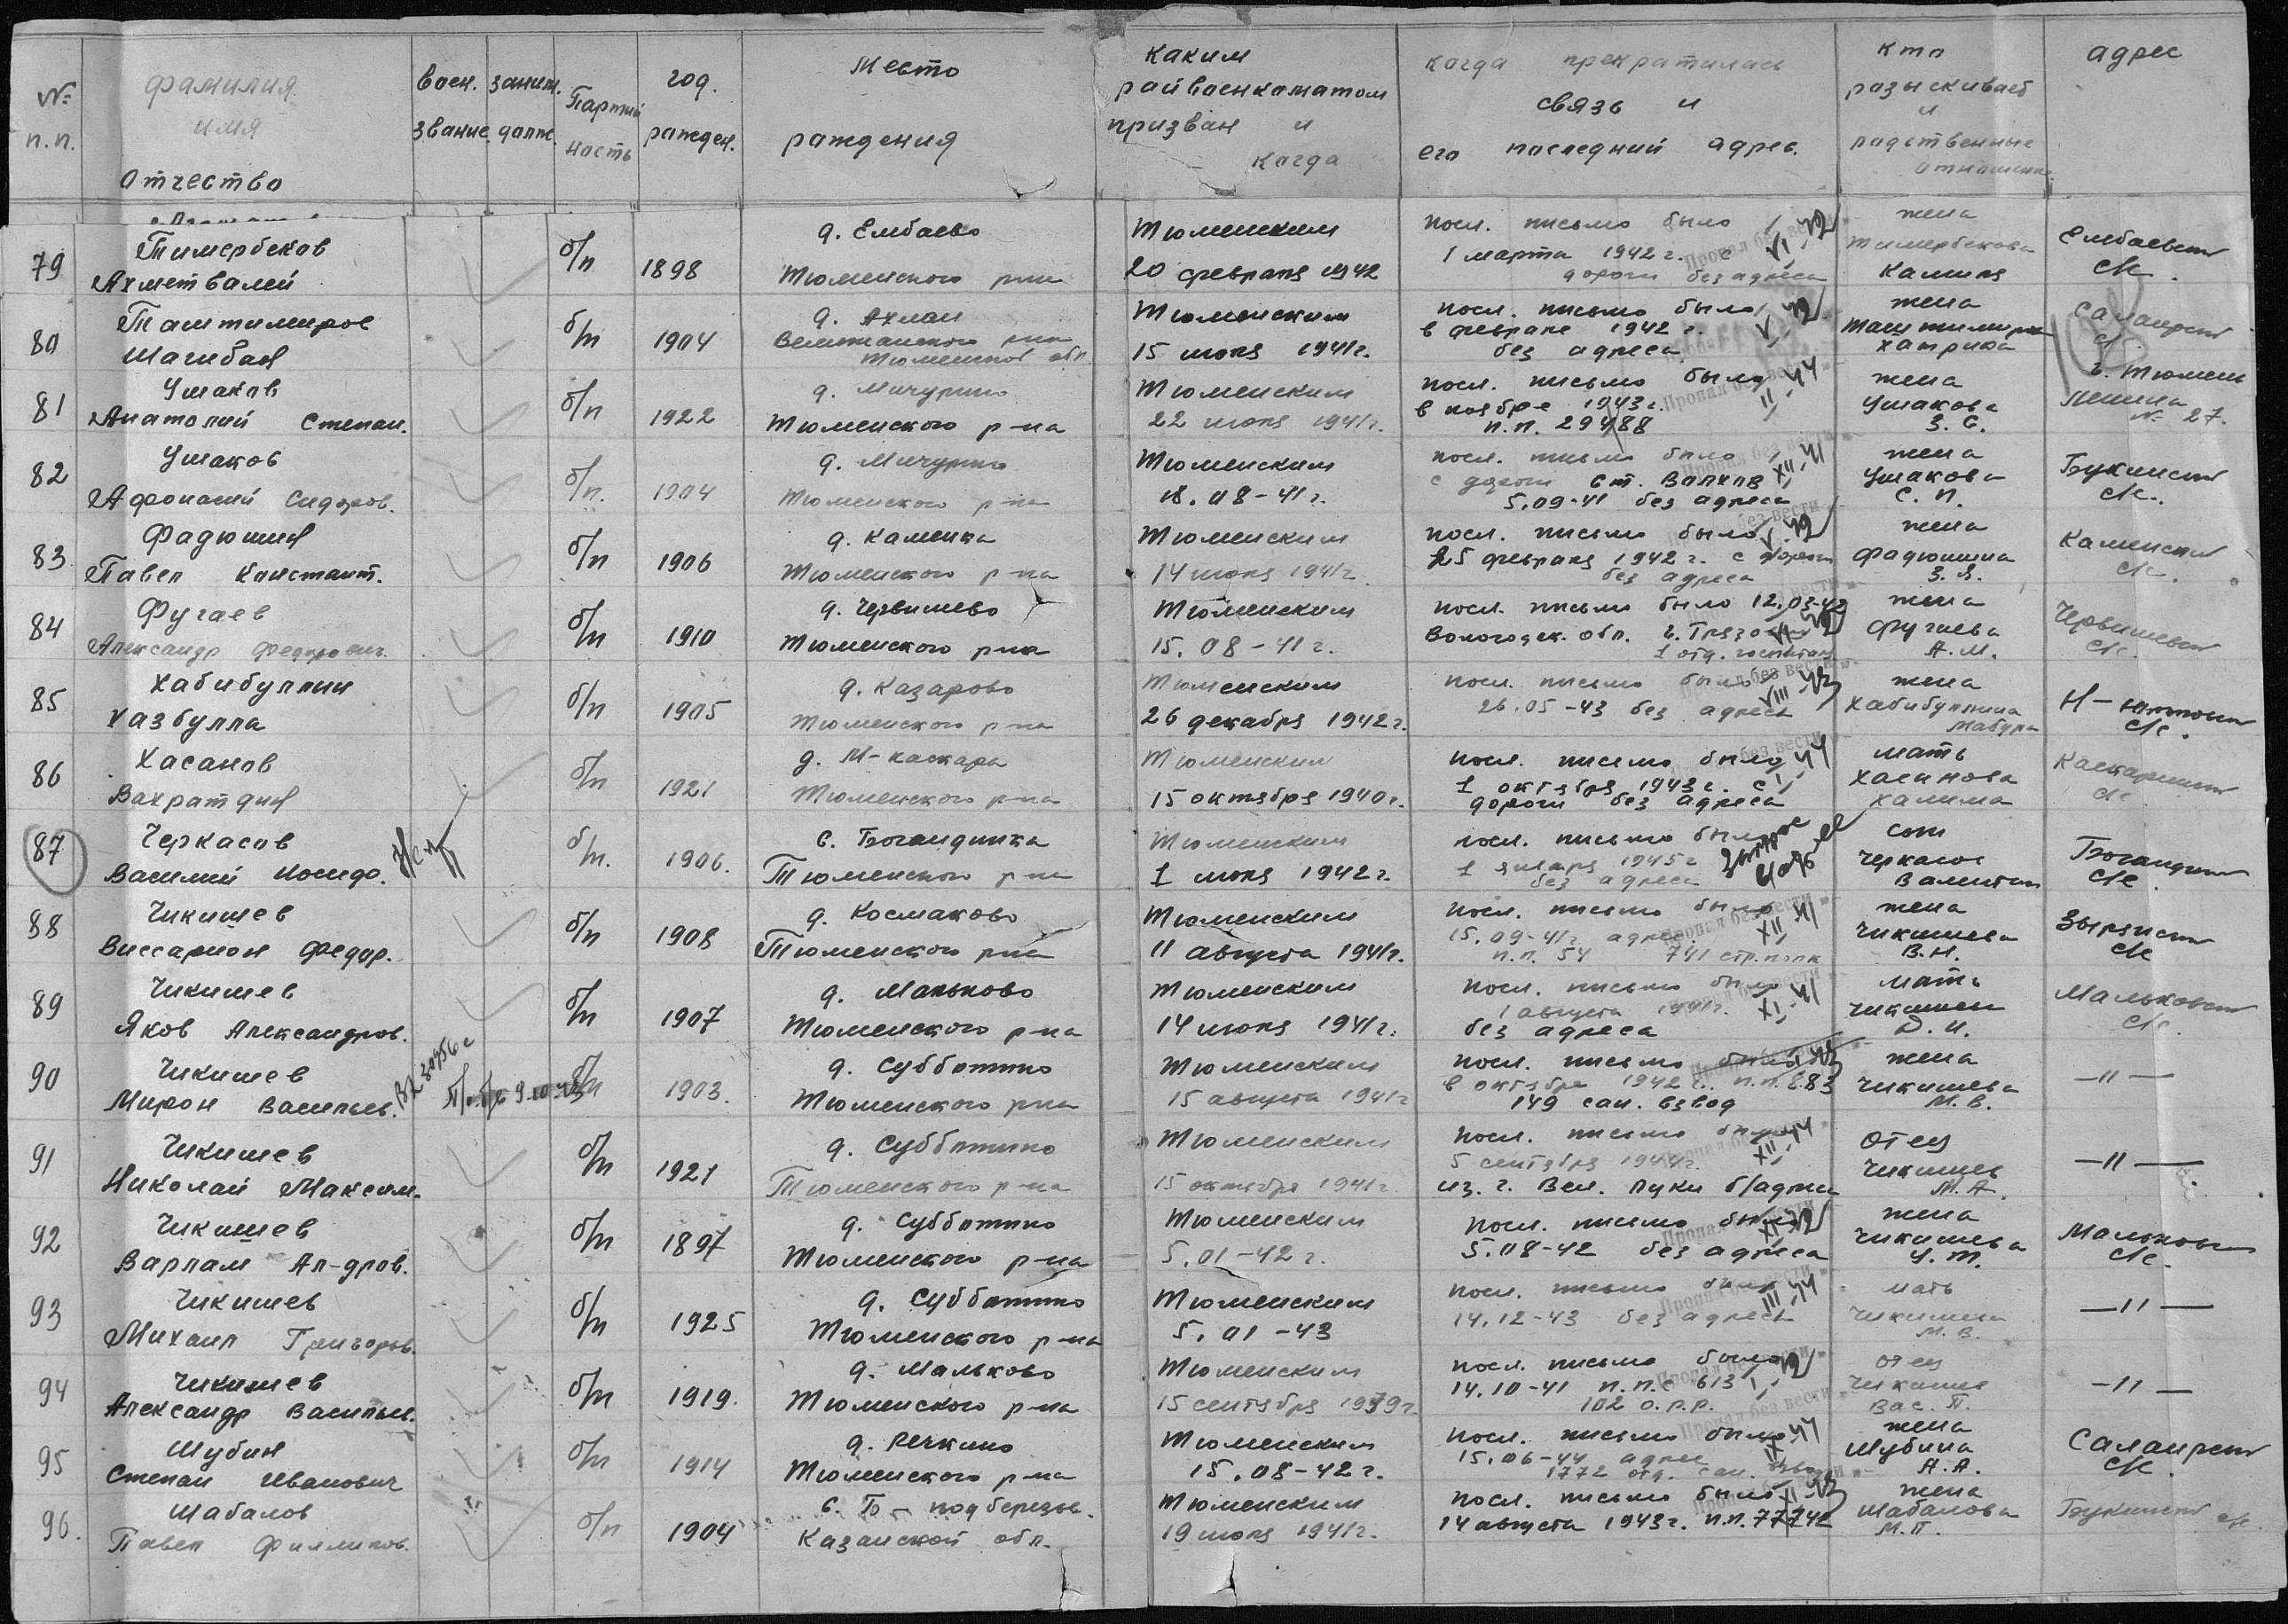 № п.п.
фамилия имя отчество
воен. звание
заним. должн.
партийность
год рожден.
место рождения
каким райвоенкоматом призван и когда
когда прекратилась связь и его последний адрес.
кто разыскивает и родственные отношения
адрес
79 Тимербеков б/п 1898 д. Ембаево Тюменским посл. письмо было жена Ембаевский
Ахметвалей Тюменского р-на 20 февраля 1942 1 марта 1942 г. с дороги без адреса VI-42 Тимербекова Камиля с/с.
80 Таштимиров б/п 1904 д. Ахман Тюменским посл. письмо было жена Салаирский
Шагибан Велижанского р-на Тюменской обл. 15 июля 1941 г. в феврале 1942 г. без адреса V-42 Таштимирова с/с
81 Ушаков б/п 1922 д. Мичурино Тюменским посл. письмо было жена г. Тюмень
Анатолий Степан. Тюменского р-на 22 июля 1941 г. в ноябре 1943 г. п.п. 29488 II-44 Ушакова З. С. Ленина № 27.
82 Ушаков б/п. 1904 д. Мичурино Тюменским посл. письмо было жена Букинский
Афонасий Сидоров. Тюменского р-на 18.08-41 г. с дороги ст. Валхов 5.09-41 без адреса XII-41 Ушакова С. П. с/с.
83 Фадюшин б/п 1906 д. Каменка Тюменским посл. письмо было жена Каменский
Павел Констант. Тюменского р-на 14 июля 1941 г. 25 февраля 1942 г. с дороги без адреса V-42 Фадюшина З. Я. с/с.
84 Фугаев б/п 1910 д. Червишево Тюменским посл. письмо было 12.03-42 жена Червишевский
Александр Федорович. Тюменского р-на 15.08-41 г. Вологодск. обл. г. Грязовец 1 отд. госпиталь VI-42 Фугаева А.М. с/с.
85 Хабибуллин б/п 1905 д. Казарово Тюменским посл. письмо было жена Н-
Хазбулла Тюменского р-на 26 декабря 1942 г. 26.05-43 без адреса VIII-43 Хабибуллина с/с.
86 Хасанов б/п 1921 д. М-каскара Тюменским посл. письмо было мать Каскаринский
Вахратдин Тюменского р-на 15 октября 1940 г. 1 октября 1943 г. с дороги без адреса I-44 Хасанова Халима с/с
87 Черкасов б/п. 1906. с. Богандинка Тюменским посл. письмо было сын Богандинский
Василий Тюменского р-на 1 июля 1942 г. 1 января 1945 г. без адреса Черкасов Валентин с/с.
88 Чикишев б/п 1908 д. Космаково Тюменским посл. письмо было жена Зырянский
Виссарион Федор. Тюменского р-на 11 августа 1941 г. 15.09-41 г. адрес п.п. 54 741 стр. полк XII-41 Чикишева В.Н. с/с
89 Чикишев б/п 1907 д. Мальково Тюменским посл. письмо было мать Мальковский
Яков Александров. Тюменского р-на 14 июля 1941 г. 1 августа 1941 г. без адреса XI-41 Чикишева Д. И. с/с.
90 Чикишев б/п 1903. д. Субботино Тюменским посл. письмо было жена —"—
Мирон Васильев. Тюменского р-на 15 августа 1941 г. в октябре 1942 г. п.п. 883 149 сан. взвод Чикишева М. В.
91 Чикишев б/п 1921 д. Субботино Тюменским посл. письмо было отец —"—
Николай Максим. Тюменского р-на 15 октября 1941 г. 5 сентября 1944 г. из. г. Вел. Луки б/адреса XII-44 Чикишев М.А.
92 Чикишев б/п 1897 д. Субботино Тюменским посл. письмо было жена Мальковский
Варлам Ал-дров. Тюменского р-на 5.01-42 г. 5.08-42 без адреса XI-42 Чикишева У. Т. с/с.
93 Чикишев б/п 1925 д. Субботино Тюменским посл. письмо было мать —"—
Михаил Григорьев. Тюменского р-на 5.01-43 14.12-43 без адреса III-44 Чикишева М. В.
94 Чикишев б/п 1919. д. Мальково Тюменским посл. письмо было отец —"—
Александр Васильев. Тюменского р-на 15 сентября 1939 г. 14.10-41 п.п.с 613 102 о.р.р. I-42 Чикишев Вас. П.
95 Шубин б/п 1914 д. Речкино Тюменским посл. письмо было жена Салаирский
Степан Иванович Тюменского р-на 15.08-42 г. 15.06-44 адрес 1772 отд. сан. Шубина А.А. с/с.
96. Шабалов б/п 1904 с. Б- подберезье. Тюменским посл. письмо было жена Букинский с/с.
Павел Филипов. Казанской обл. 19 июля 1941 г. 14 августа 1943 г. п.п. 77742 XI-43 Шабалова М.П.